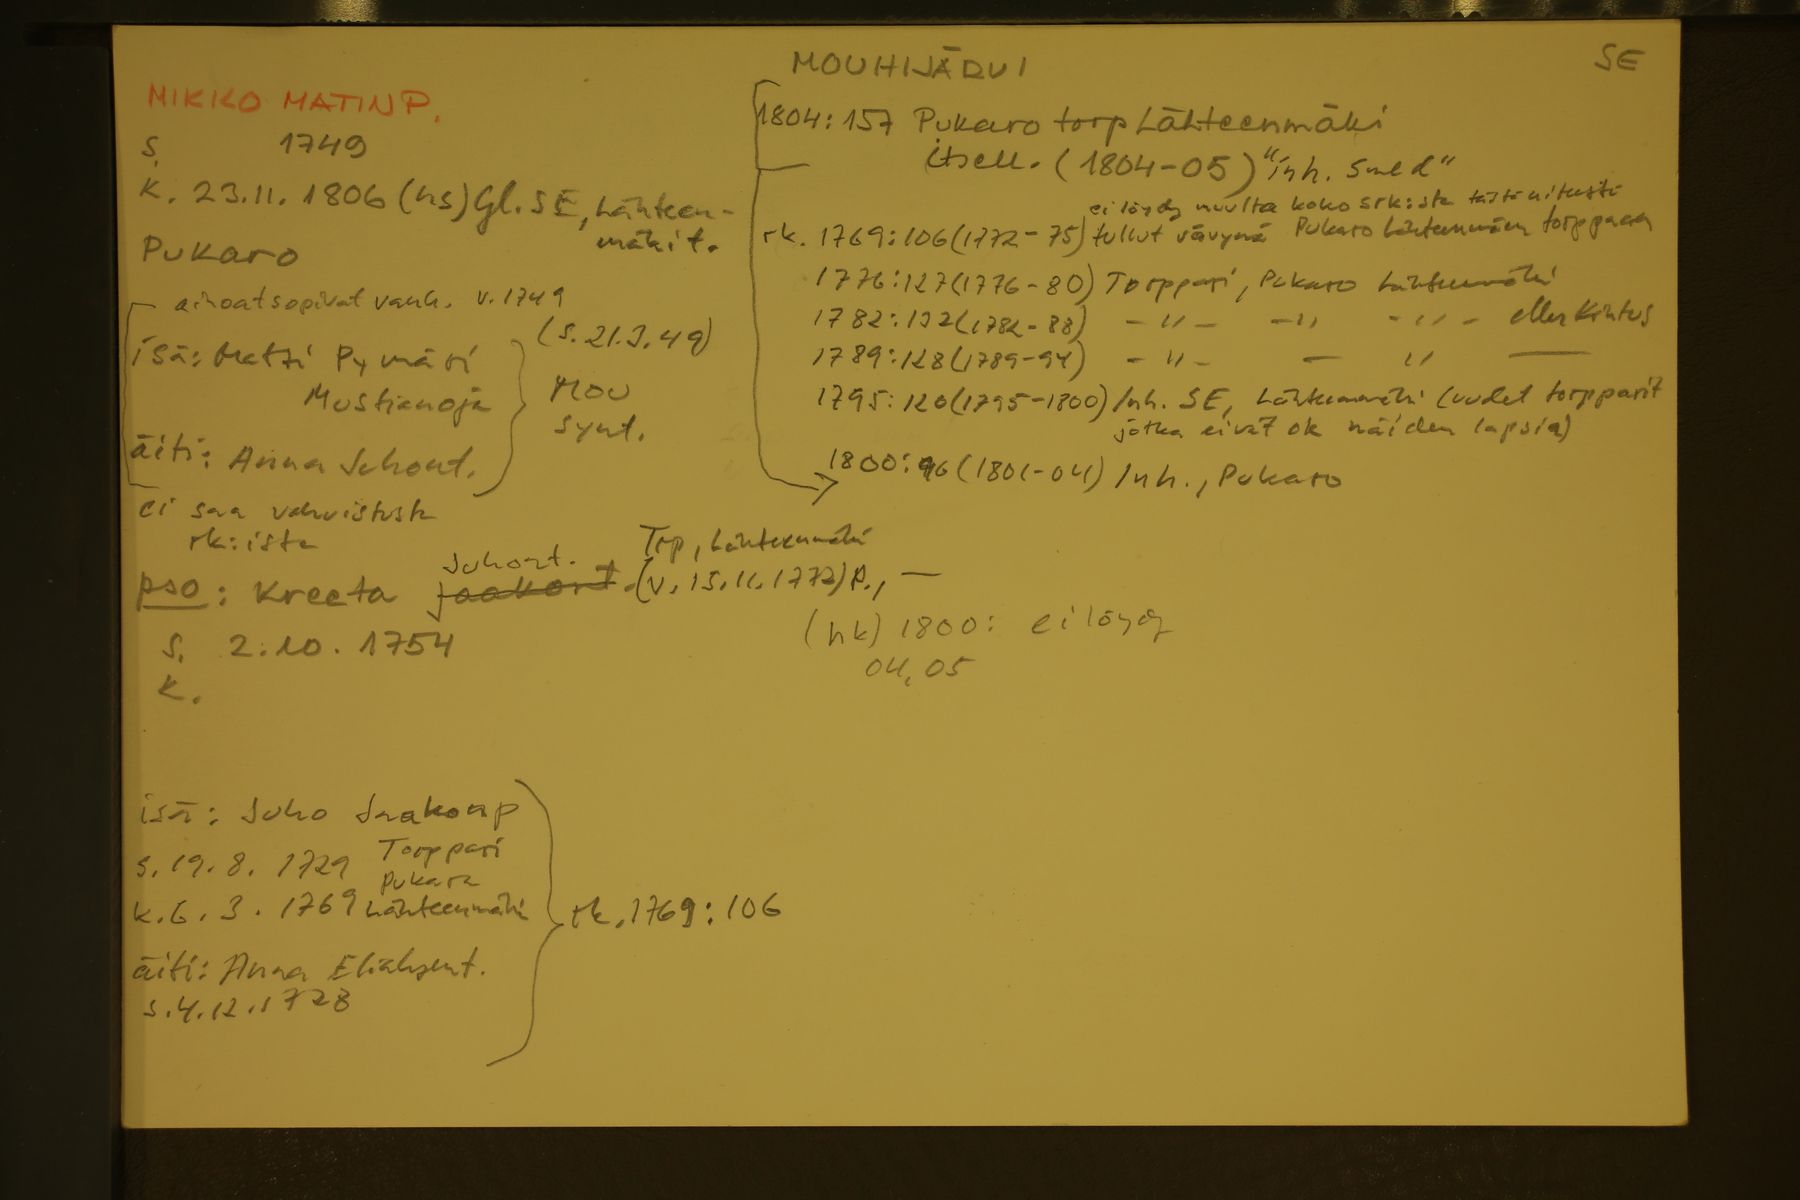 MOUHIJÄRVI
SE
MIKKO MATINP.
s. 1749
k. 23.11.1806 (hs) Gl. SE, Lähteen-
mäki t.
Pukaro
ainoat sopivat vanh. v. 1749
(s. 21.3.49)
isä: Matti Pymäri
Mustianoja
Mou
synt.
äiti: Anna Juhont.
ei saa vahvistusta
rk:ista
pso: Kreeta Juhont. jaakont. (v. 15.11.1772) p., —
Torp, Lähteenmäki
s. 2.10.1754
k.
isä: Juho Jaakonp
s. 19.8.1729 Torppari
Pukara
k. 6.3.1769 Lähteenmäki
rk. 1769:106
äiti: Anna Eliaksent.
s. 4.12.1728
1804:157 Pukaro torp Lähteenmäki
itsell. (1804-05) "inh. Smed"
ei löydy muulta koko srk:sta
rk. 1769:106 (1772-75) tullut vävynä Pukaro Lähteenmäen torppaan
1776:127 (1776-80) Torppari, Pukaro Lähteenmäki
1782:132 (1782-88) -"- -"- -"- eller Kintus
1789:128 (1789-94) -"- — " —
1795:120 (1795-1800) Inh. SE, Lähteenmäki (uudet torpparit
jotka eivät ok näiden lapsia)
1800:96 (1801-04) Inh., Pukaro
(hk) 1800: ei löydy
04, 05